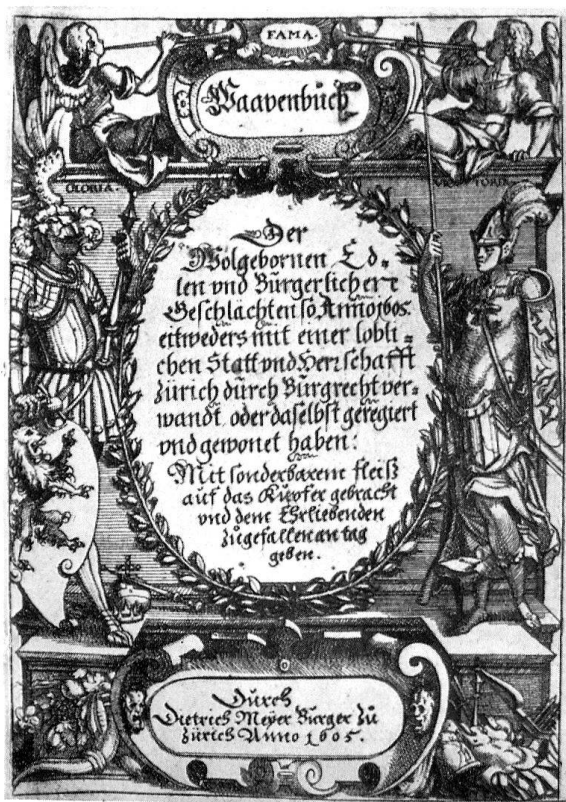 FAMA.
Waapenbůch
GLORIA. VICTORIA
Der
Wolgebornen Ed-
len vnd Burgerlichen
Geschlächten so Anno 1605.
eitweders mit einer lobli-
chen Statt vnd Herrschafft
Zürich durch Burgrecht ver-
wandt, oder daselbst geregiert
vnd gewonet haben:
Mit sonderbarem fleiß
auf das Kupfer gebracht
vnd dem Ehrliebenden
zugefallen an tag
geben.
Durch
Dietrich Meyer Burger zů
Zürich Anno 1605.